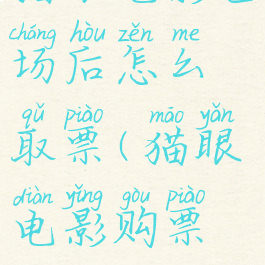 cháng hòu zěn me
场后怎么
qǔ piào māo yǎn
取票(猫眼
diàn yǐng gòu piào
电影购票